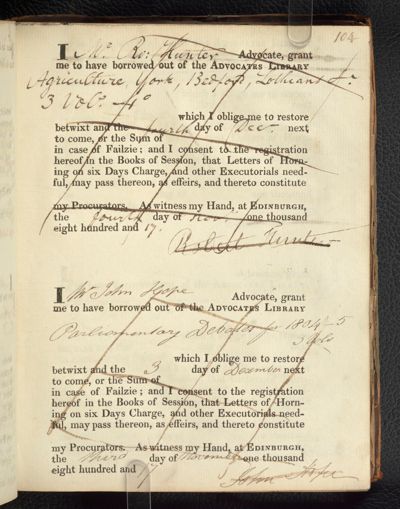 104
I Mr. Ro: Hunter Advocate, grant
me to have borrowed out of the ADVOCATES LIBRARY
Agriculture York, Bedford, Lothians &c.
3 Vols. 4o
which I oblige me to restore
betwixt and the fourth day of Decr. next
to come, or the Sum of
in case of Failzie; and I consent to the registration
hereof in the Books of Session, that Letters of Horn-
ing on six Days Charge, and other Executorials need-
ful, may pass thereon, as effeirs, and thereto constitute
my Procurators. As witness my Hand, at EDINBURGH,
the fourth day of Novr. one thousand
eight hundred and 17.
Robert Hunter
I Mr John Hope Advocate, grant
me to have borrowed out of the ADVOCATES LIBRARY
Parliamentary Debates for 1804-5
3 vols
which I oblige me to restore
betwixt and the 3 day of December next
to come, or the Sum of
in case of Failzie; and I consent to the registration
hereof in the Books of Session, that Letters of Horn-
ing on six Days Charge, and other Executorials need-
ful, may pass thereon, as effeirs, and thereto constitute
my Procurators. As witness my Hand, at EDINBURGH,
the third day of November one thousand
eight hundred and 17
John Hope